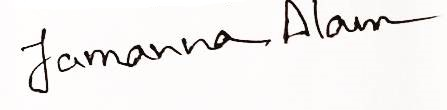 Tamanna Alam